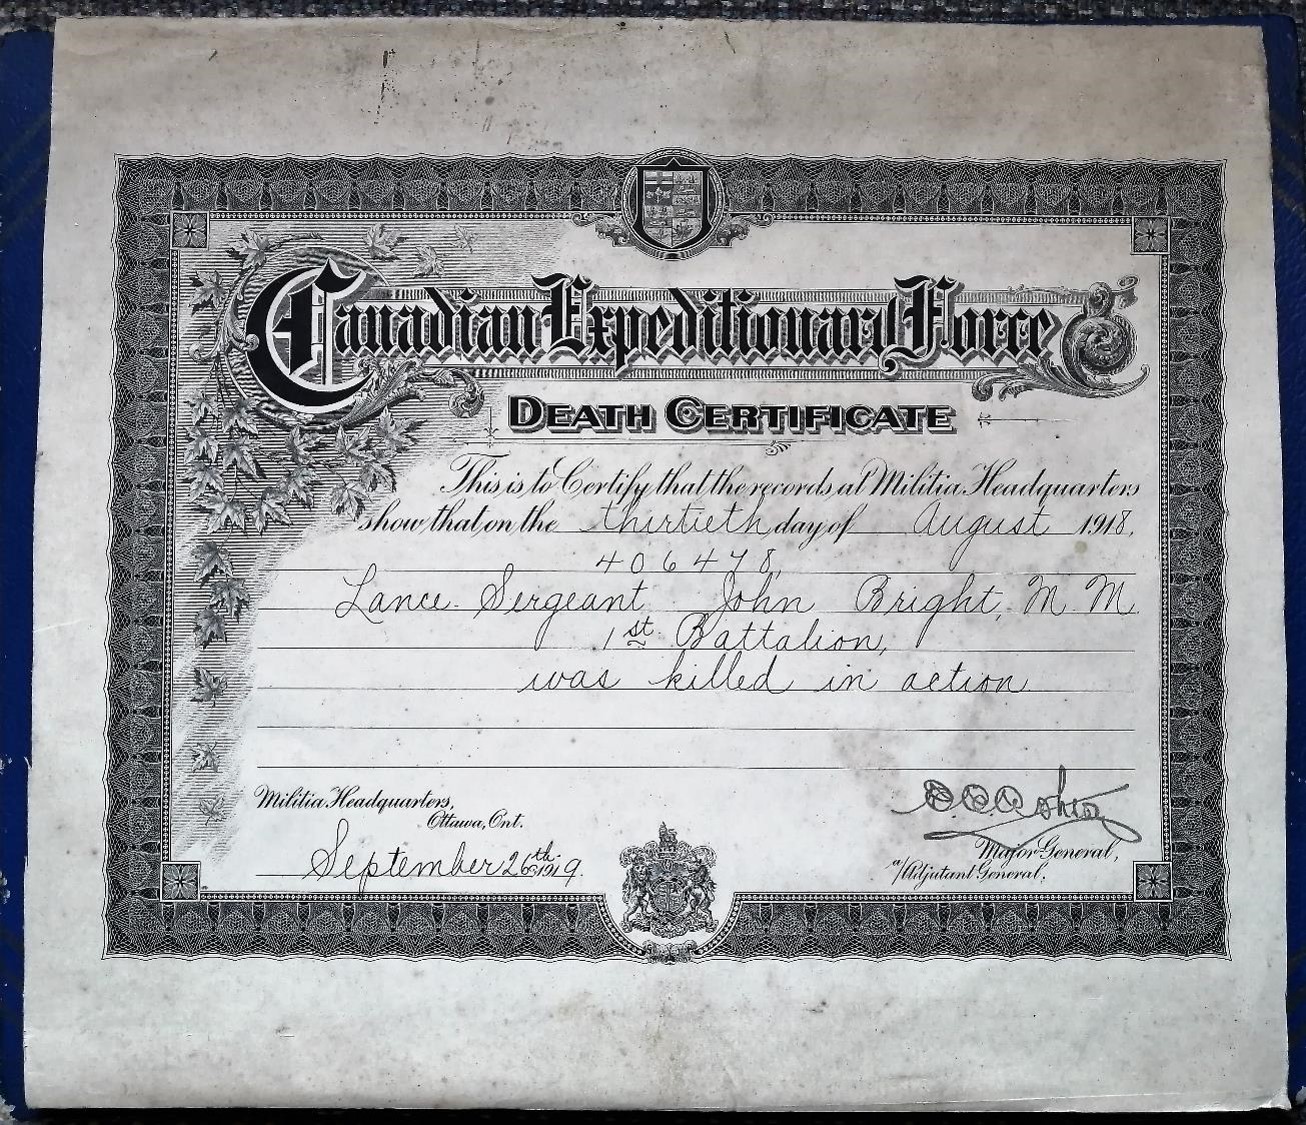 Canadian Expeditionary Force
DEATH CERTIFICATE
This is to Certify that the records at Militia Headquarters
show that on the thirtieth day of August 1918,
406478,
Lance Sergeant John Bright, M M.
1st Battalion,
was killed in action
Militia Headquarters,
Ottawa, Ont.
September 26th 1919.
Major General,
a/Adjutant General.